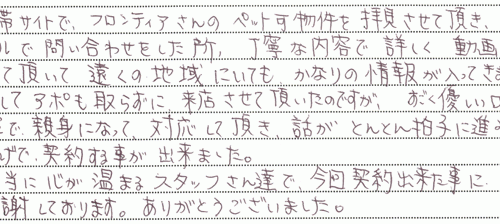 帯サイトで、フロンティアさんのペット可物件を拝見させて頂き、
ルで問い合わせをした所、丁寧な内容で詳しく動画
て頂いて遠くの地域にいてもかなりの情報が入ってき
してアポも取らずに来店させて頂いたのですが、おごく優しい口
で親身になって対応して頂き、話がとんとん拍子に進
げで契約する事が出来ました。
当に心が温まるスタッフさん達で、今回契約出来た事に
謝しております。ありがとうございました。